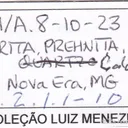 /A.8-10-23
RITA, PREHNITA,
QUARTZO
Nova Era, MG
2.1.1-10
OLEÇÃO LUIZ MENEZE